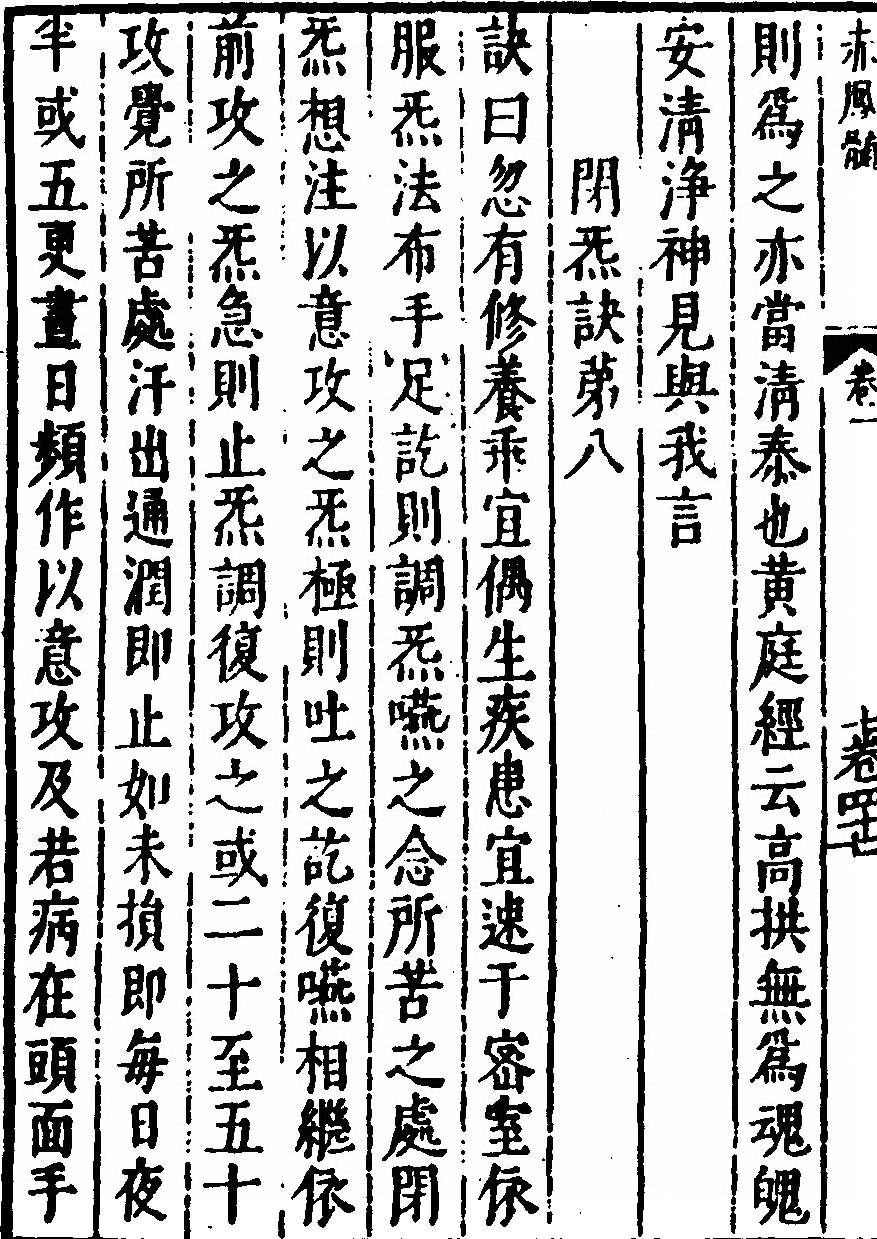 赤鳳髓
卷一
則爲之亦當清泰也黃庭經云高拱無爲魂魄
安清浄神見與我言
閉炁訣第八
訣曰忽有修養乖宜偶生疾患宜速于密室依
服炁法布手足訖則調炁嚥之念所苦之處閉
炁想注以意攻之炁極則吐之訖復嚥相繼依
前攻之炁急則止炁調復攻之或二十至五十
攻覺所苦處汗出通潤即止如未損即每日夜
半或五更晝日頻作以意攻及若病在頭面手